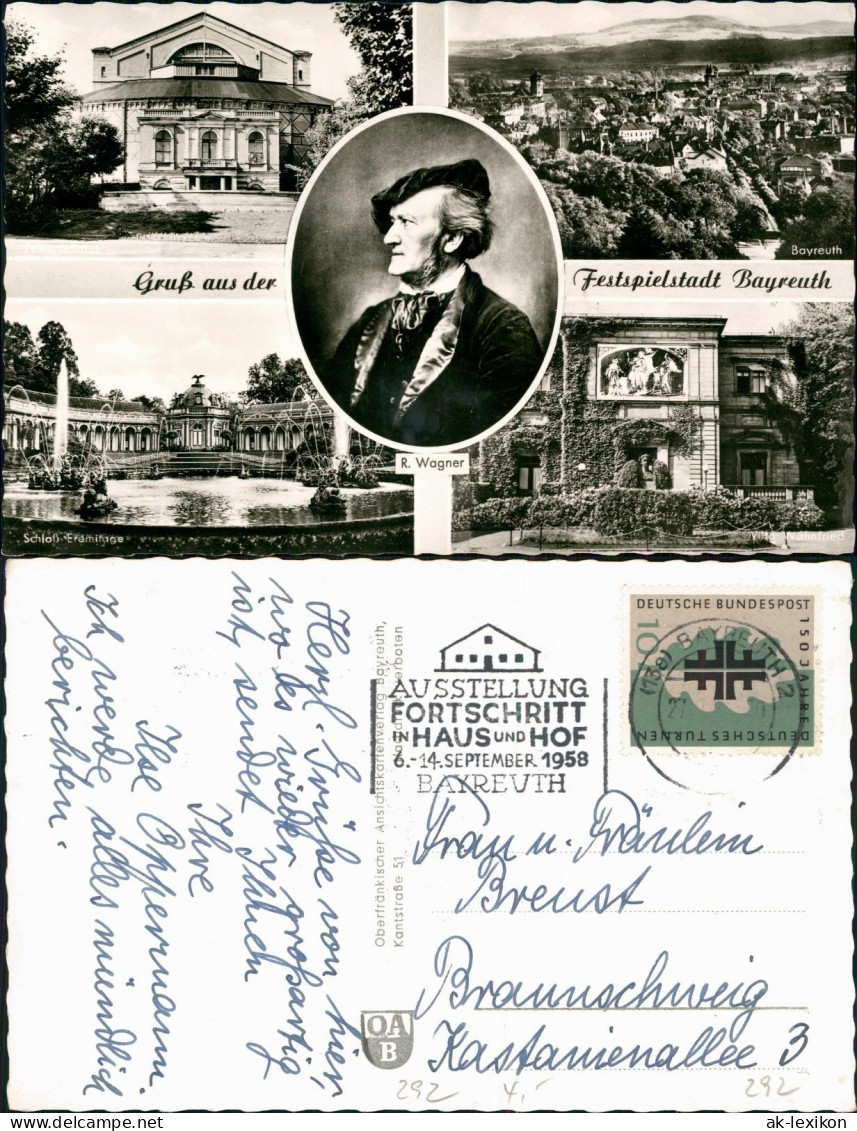 Bayreuth
Gruß aus der
Festspielstadt Bayreuth
R. Wagner
Schloß Eremitage
Villa Wahnfried
Herzl. Grüße von hier,
wo es wieder großartig
ist, sendet Ihnen
Ihre
Ilse Oppermann.
Ich werde alles mündlich
berichten.
Oberfränkischer Ansichtskartenverlag Bayreuth,
Kantstraße 51
verboten
OA
B
AUSSTELLUNG
FORTSCHRITT
IN HAUS UND HOF
6.-14. SEPTEMBER 1958
BAYREUTH
DEUTSCHE BUNDESPOST
150 JAHRE
DEUTSCHES TURNEN
10
(13a) BAYREUTH 2
Frau u. Fräulein
Breust
Braunschweig
Kastanienallee 3
292
4,-
292
ak-lexikon